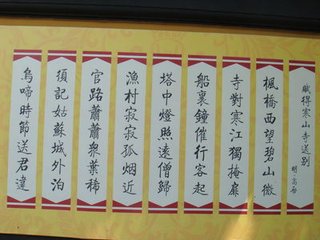 賦得寒山寺送別
明・高啟
楓橋西望碧山微
寺對寒江獨掩扉
船裏鐘催行客起
塔中燈照遠僧歸
漁村寂寂孤烟近
官路蕭蕭眾葉稀
須記姑蘇城外泊
烏啼時節送君違